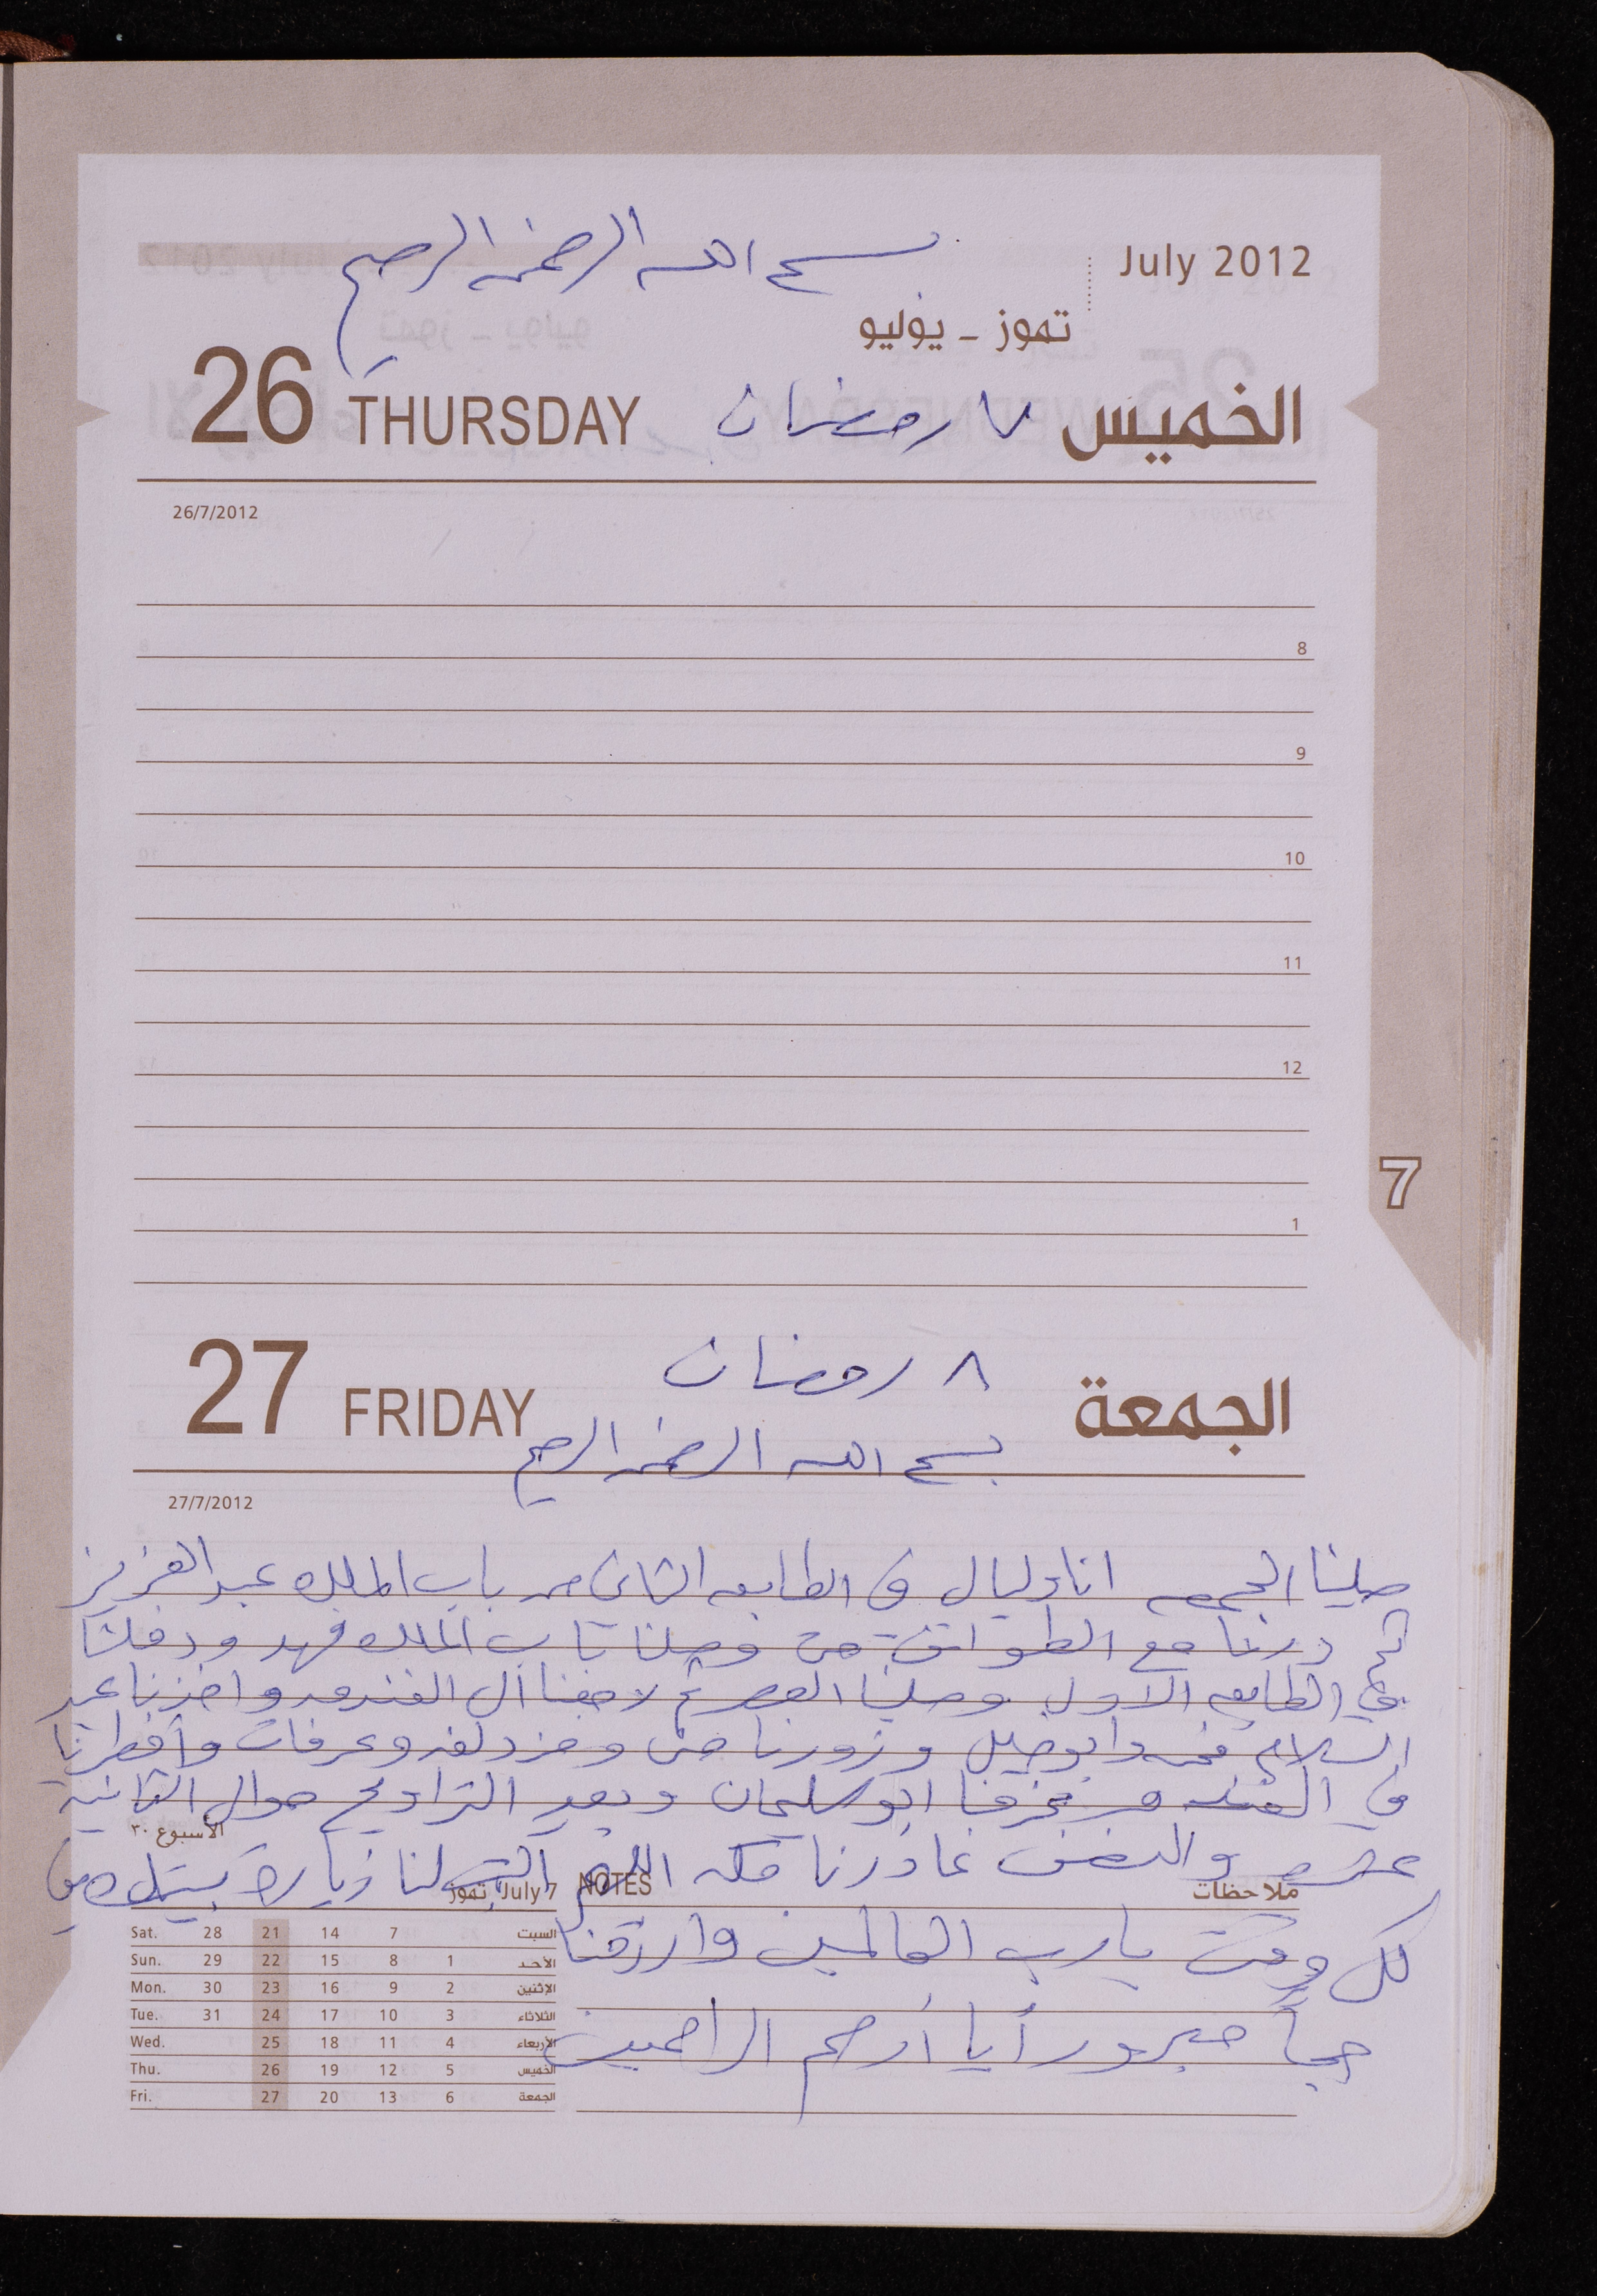 بسم الله الرحمن الرحيم
July 2012
تموز - يوليو
26 THURSDAY ٧ رمضان الخميس
26/7/2012
8
9
10
11
12
1
7
٨ رمضان
27 FRIDAY الجمعة
بسم الله الرحمن الرحيم
27/7/2012
صلينا الجمعه انا وليال في الطابق الثاني من باب الملك عبد العزيز
ثم درنا مع الطوائف حتى وصلنا باب الملك فهد ودخلنا
في الطابق الاول وصلينا العصر ثم لاحقنا الى الفندق واخذنا عبد
السلام وابو خليل وزورنا منى ومزدلفه وعرفات وافطرنا
في الفندق ابو سليمان وبعد التراويح حوالي الثانية
الأسبوع ٣٠
عشره والنصف غادرنا مكه اللهم اكتب لنا زيارة بيتك في
7 July, تموز
NOTES ملاحظات
كل وقت يا رب العالمين وارزقنا
حجاً مبروراً يا أرحم الراحمين
Sat. 28 21 14 7 السبت
Sun. 29 22 15 8 1 الأحد
Mon. 30 23 16 9 2 الإثنين
Tue. 31 24 17 10 3 الثلاثاء
Wed. 25 18 11 4 الأربعاء
Thu. 26 19 12 5 الخميس
Fri. 27 20 13 6 الجمعة